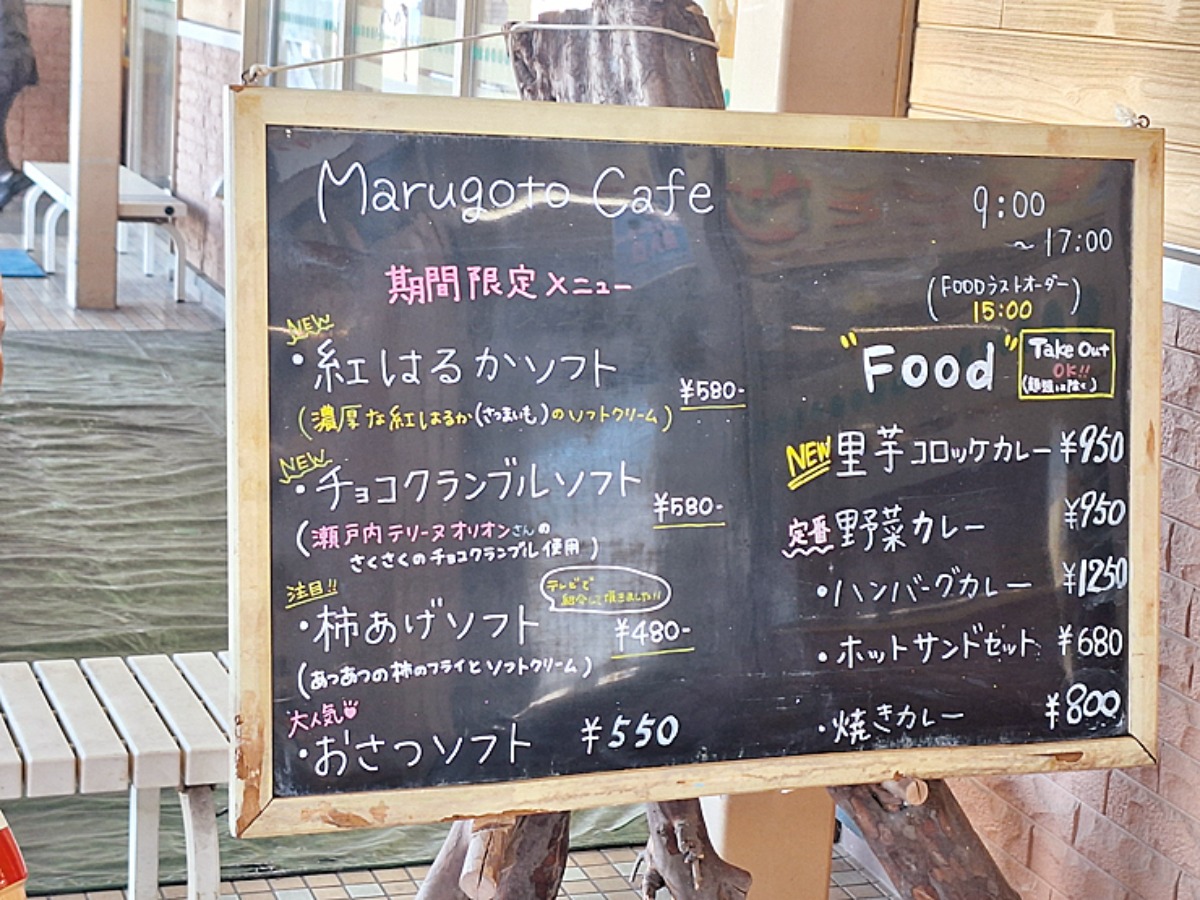 Marugoto Cafe
期間限定メニュー
NEW
・紅はるかソフト
¥580-
(濃厚な紅はるか(さつまいも)のソフトクリーム)
NEW
・チョコクランブルソフト
¥580-
(瀬戸内テリーヌオリオンさんの
さくさくのチョコクランブル使用)
注目!!
テレビで
紹介して頂きました!!
・柿あげソフト
¥480-
(あつあつの柿のフライとソフトクリーム)
大人気
・おさつソフト ¥550
9:00
~17:00
(FOODラストオーダー)
15:00
"Food"
Take Out
OK!!
NEW 里芋コロッケカレー ¥950
定番 野菜カレー ¥950
・ハンバーグカレー ¥1250
・ホットサンドセット ¥680
・焼きカレー ¥800